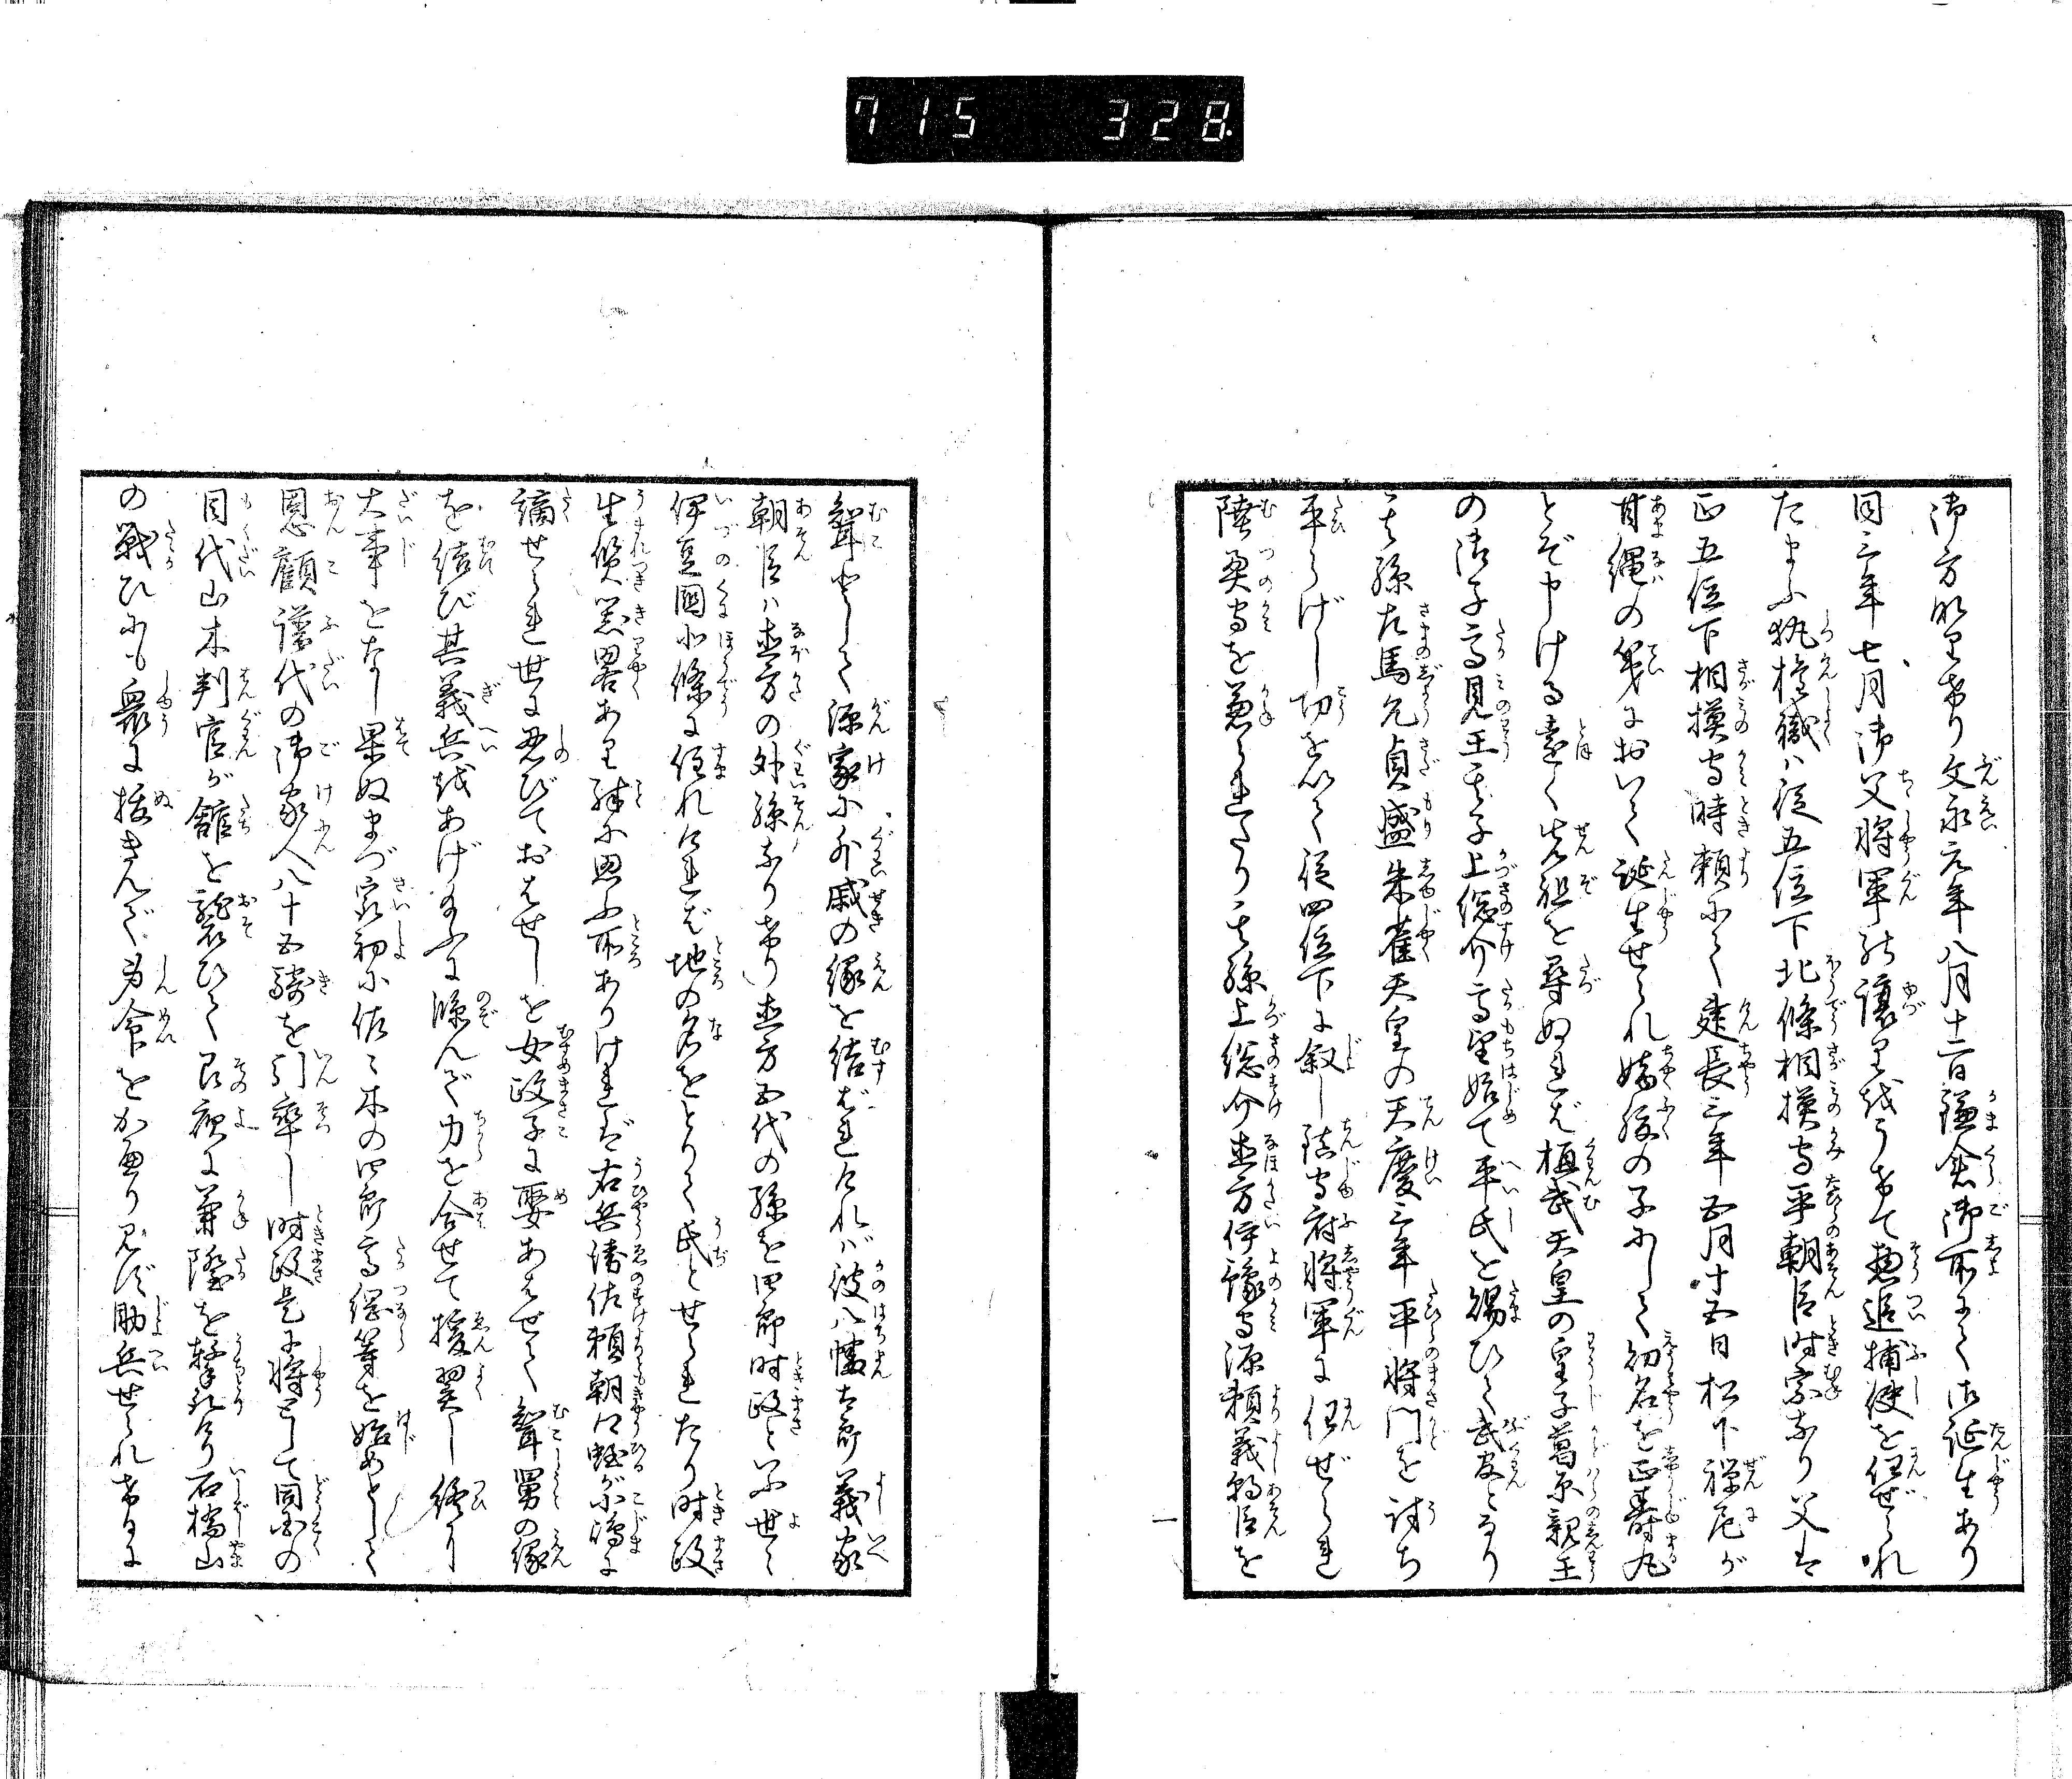 715 328
御方なり希り文永元年八月十二日鎌倉御所にて御誕生あり
同三年七月御父将軍の譲りをうけて惣追捕使を任ぜられ
たまふ執権職ハ従五位下北條相模守平朝臣時宗なり父は
正五位下相模守時頼にて建長三年五月十五日松下禅尼が
甘縄の第において誕生せられ嫡腹の子にして幼名を正寿丸
とぞ申しける遠く先祖を尋ぬれば桓武天皇の皇子葛原親王
の御子高見王其子上総介高望始て平氏を賜ひて武臣となり
其孫左馬允貞盛朱雀天皇の天慶三年平将門を討ち
平らげし功を以て従四位下に叙し鎮守府将軍に任ぜられ
陸奥守を兼られたり其孫上総介直方伊豫守源頼義朝臣を
聟として源家に外戚の縁を結ばれけれバ彼八幡太郎義家
朝臣ハ直方の外孫なりけり直方五代の孫を四郎時政といふ世々
伊豆國北條に住れければ地の名をとりて氏とせられたり時政
生質器畧あり殊に思ふ所ありければ右兵衛佐頼朝に蛭が小嶋に
謫せられ世に忍びておはせしを女政子に娶あはせて聟舅の縁
を結び其義兵をあげ給ふに臨んで力を合せて援翼し終に
大事をなし果ぬまづ最初に佐々木四郎高綱等を始めとして
恩顧譜代の御家人八十五騎を引率し時政是に将として同国の
目代山木判官が舘を襲ひて其夜に兼隆を撃取けり石橋山
の戦ひにも衆に抜きんで身命をかへり見ず助兵せられけるに
一